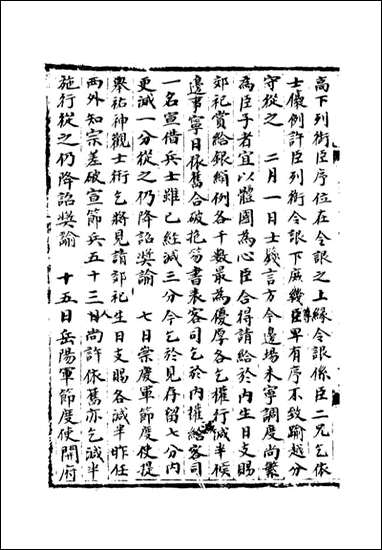 高下列銜臣序位在令詪之上緣令詪係臣二兄乞依
士儀例許臣列銜令詪下庶幾尊卑有序不致踰越分
守從之　二月一日士㒟言方今邊塲未寧調度尚繁
為臣子者宜以體國為心臣合得請給於內生日支賜
郊祀賞給銀絹例各千數最為優厚各乞權行減半候
邊事寧日依舊合破抱笏書表客司乞於內權減客司
一名宣借兵士雖已經減三分今乞於見存留七分內
更減一分從之仍降詔奬諭　七日崇慶軍節度使提
舉祐神觀士術乞將見請郊祀生日支賜各減半昨任
西外知宗差破宣節兵五十三人日尚許依舊亦乞減半
施行從之仍降詔奬諭　十五日岳陽軍節度使開府